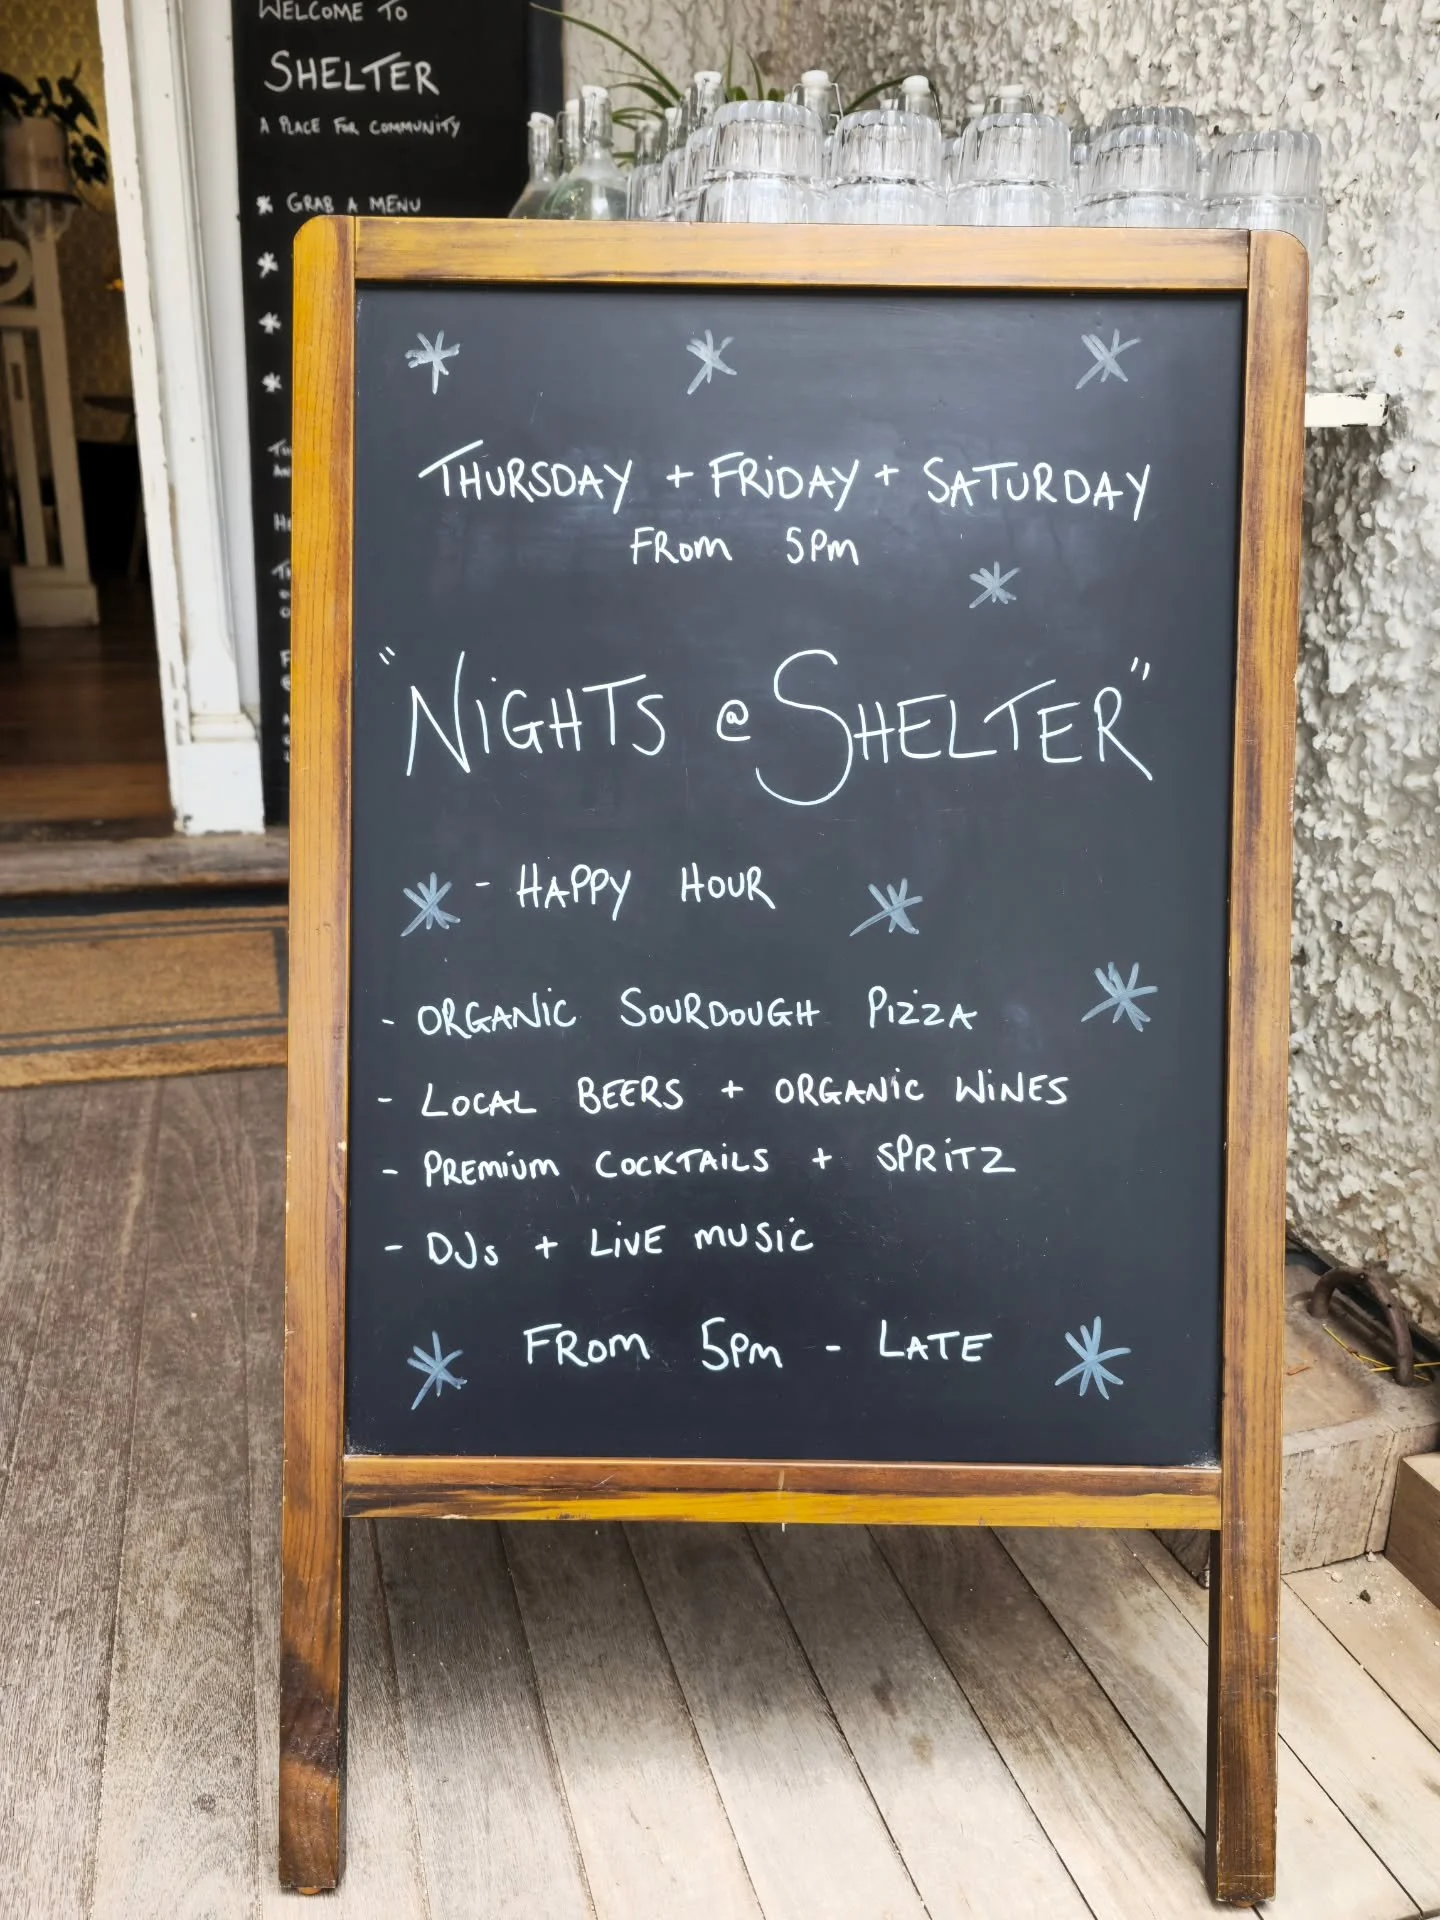 WELCOME TO
SHELTER
A PLACE FOR COMMUNITY
* GRAB A MENU
THURSDAY + FRIDAY + SATURDAY
FROM 5PM
"NIGHTS @ SHELTER"
- HAPPY HOUR
- ORGANIC SOURDOUGH PIZZA
- LOCAL BEERS + ORGANIC WINES
- PREMIUM COCKTAILS + SPRITZ
- DJs + LIVE MUSIC
FROM 5PM - LATE